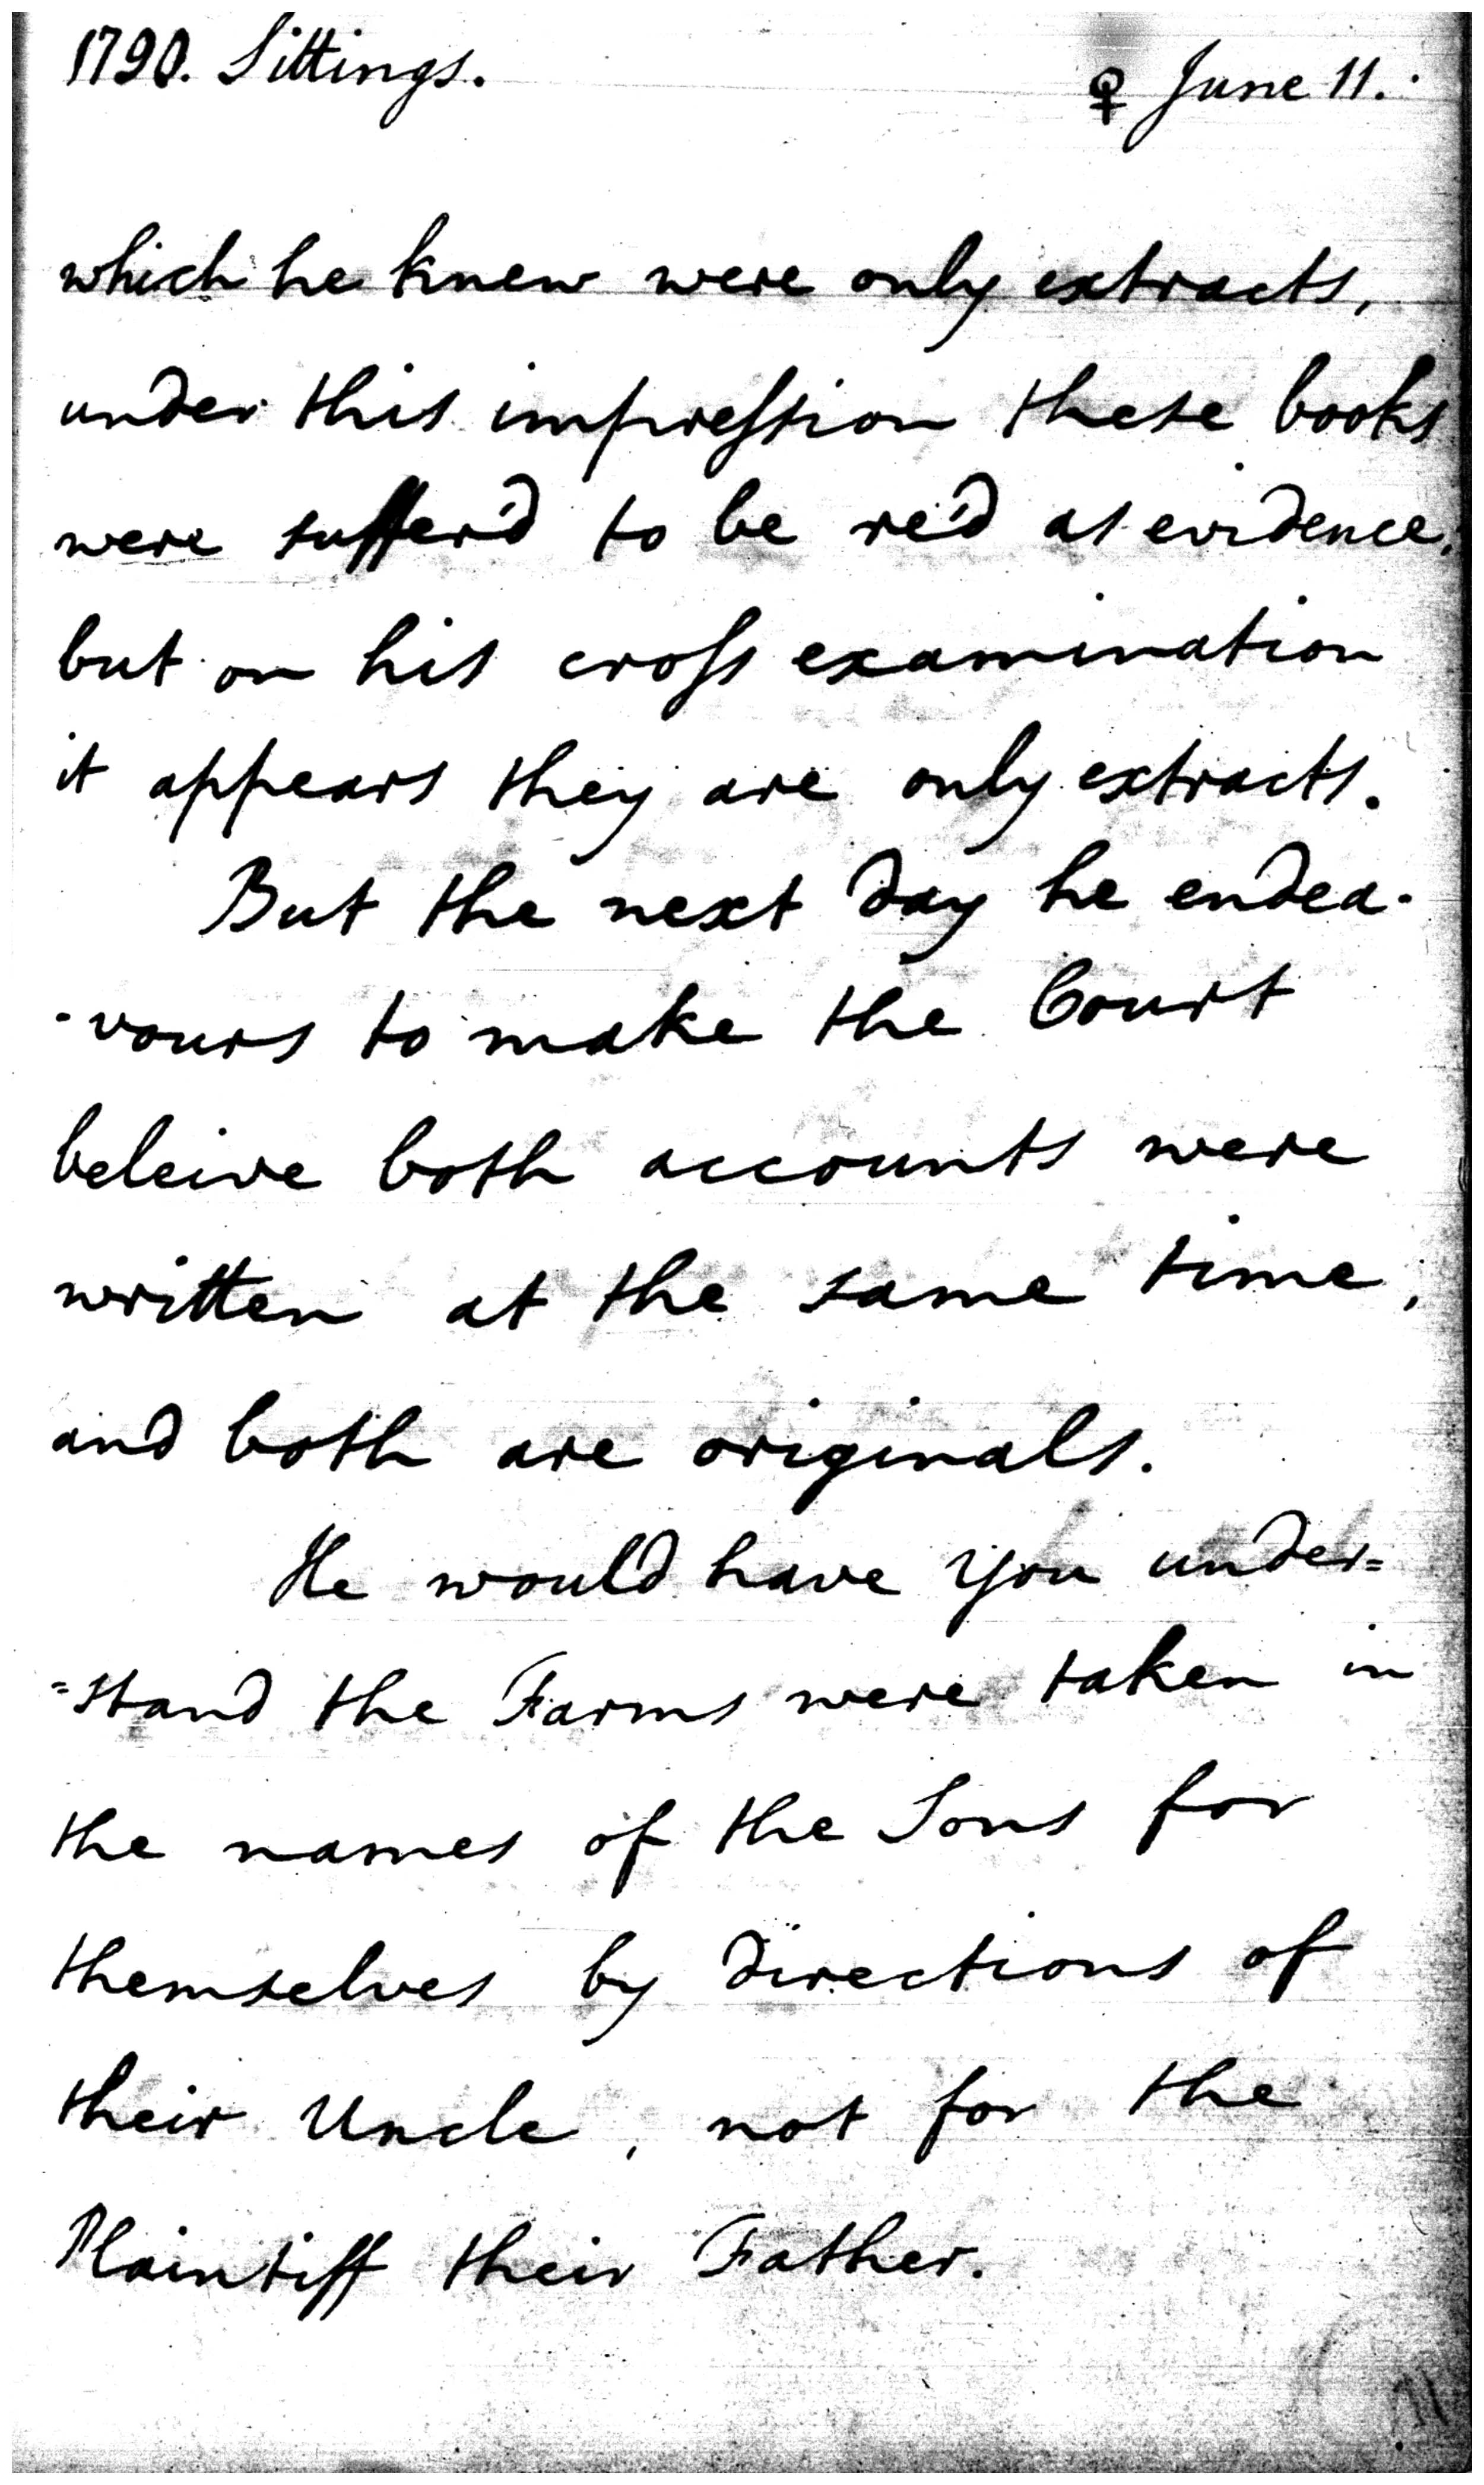 1790. Sittings. ♀ June 11.
which he knew were only extracts,
under this impreſsion these books
were suffer'd to be re'd as evidence.
but on his croſs examination
it appears they are only extracts.
But the next day he endea-
-vours to make the Court
beleive both accounts were
written at the same time,
and both are originals.
He would have you under=
=stand the Farms were taken in
the names of the Sons for
themselves by directions of
their Uncle, not for the
Plaintiff their Father.